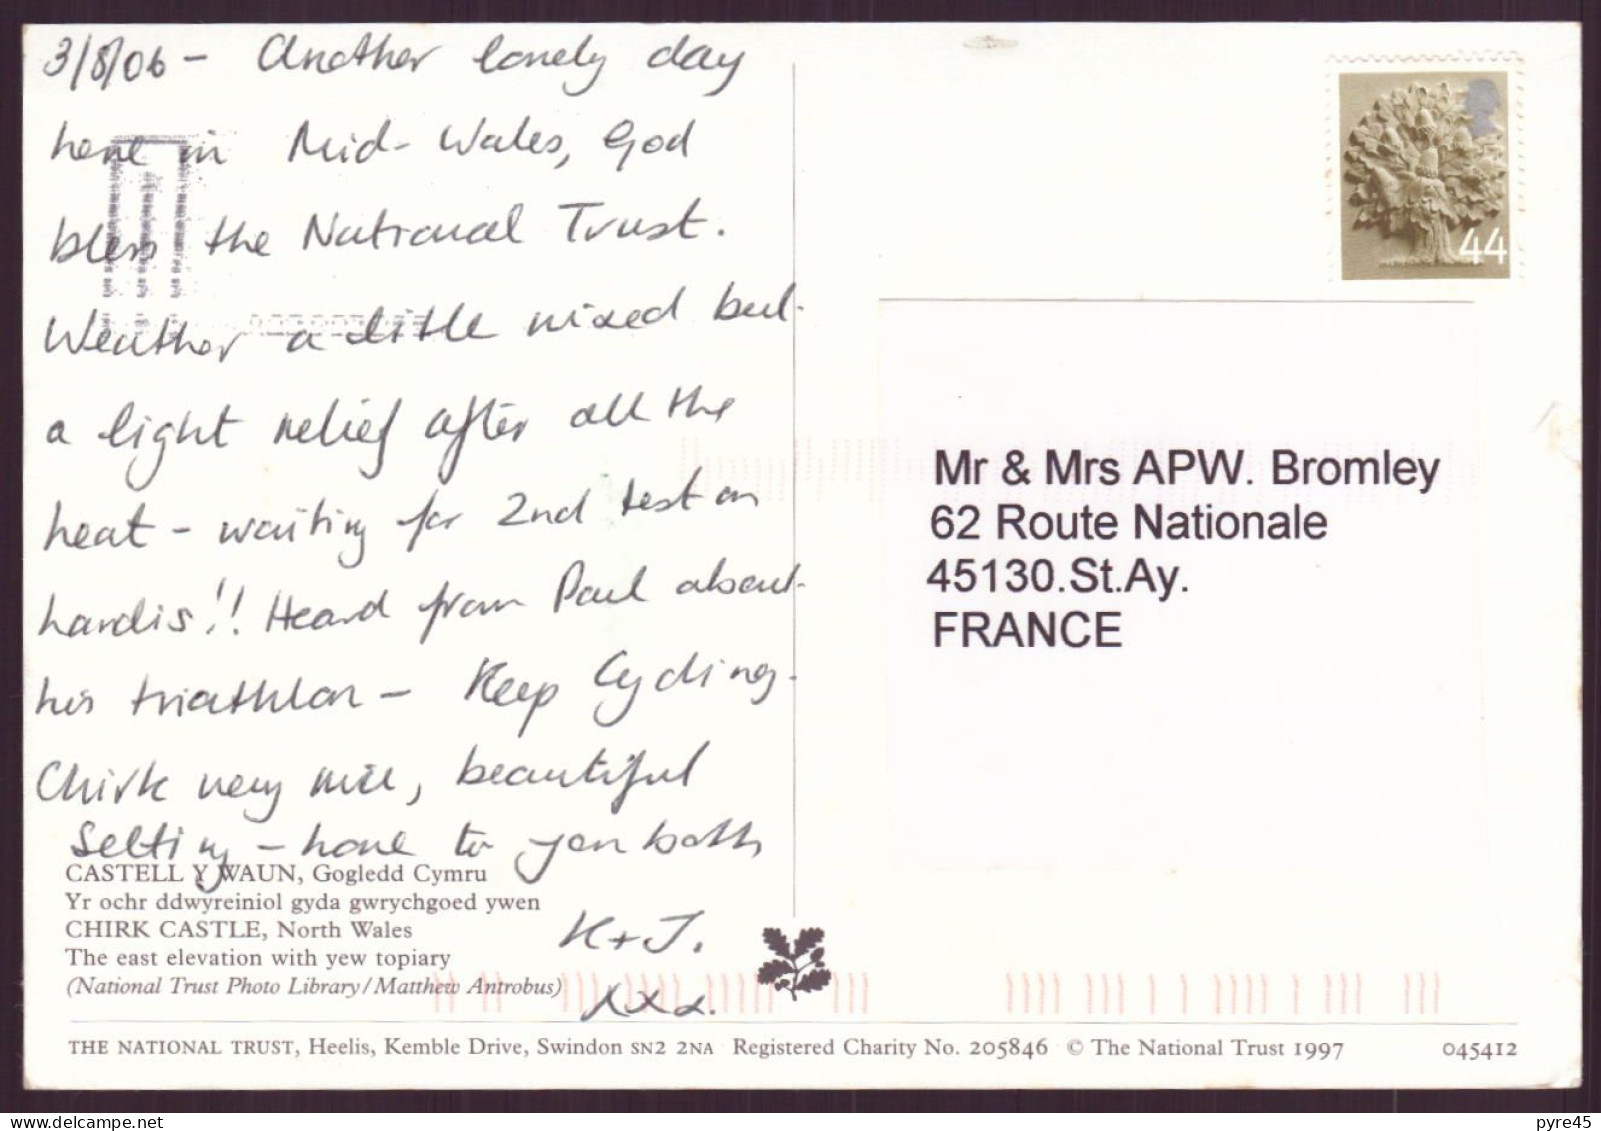 3/8/06 - Another lonely day
here in Mid-Wales, God
bless the National Trust.
Weather a little mixed but
a light relief after all the
heat - waiting for 2nd test on
hardis!! Heard from Paul about
his triathlon - Keep Cycling.
Chirk very nice, beautiful
setting - love to you both
K+J.
xxx.
44
Mr & Mrs APW. Bromley
62 Route Nationale
45130.St.Ay.
FRANCE
CASTELL Y WAUN, Gogledd Cymru
Yr ochr ddwyreiniol gyda gwrychgoed ywen
CHIRK CASTLE, North Wales
The east elevation with yew topiary
(National Trust Photo Library/Matthew Antrobus)
THE NATIONAL TRUST, Heelis, Kemble Drive, Swindon SN2 2NA Registered Charity No. 205846 © The National Trust 1997 045412
pyre45